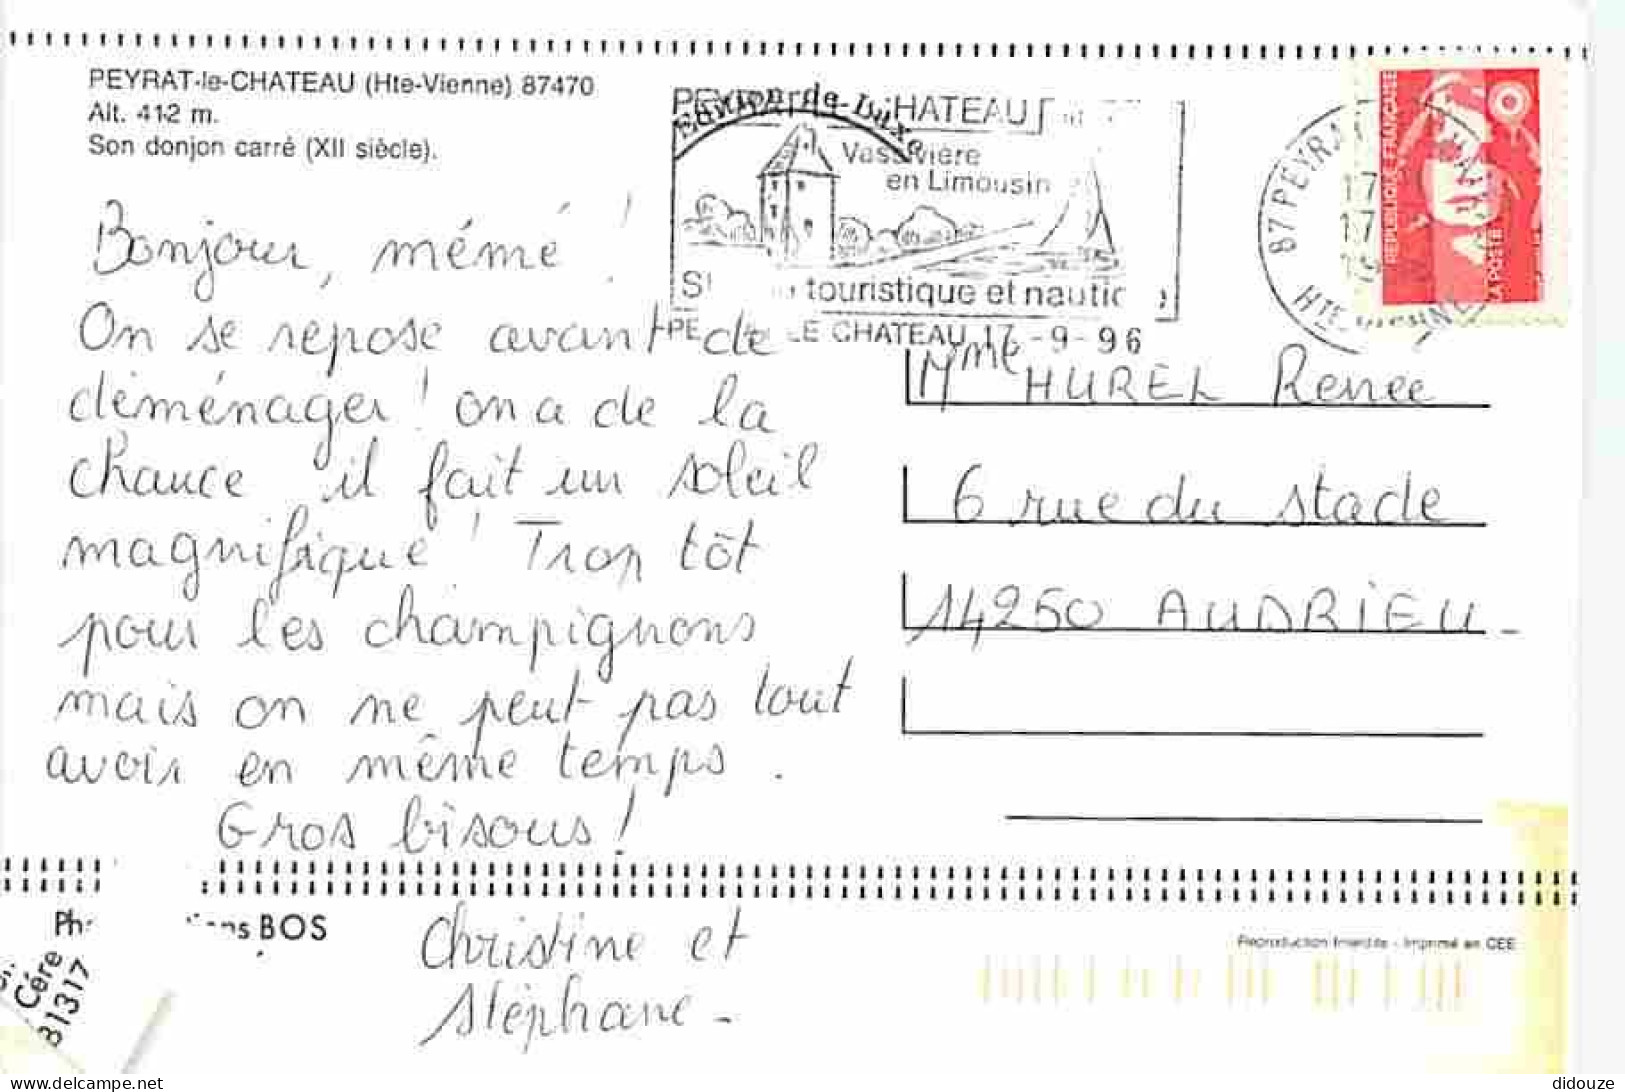 PEYRAT-le-CHATEAU (Hte-Vienne) 87470
Alt. 412 m.
Son donjon carré (XII siècle).
Bonjour, mémé !
On se repose avant de
déménager ! on a de la
chance il fait un soleil
magnifique ! Trop tôt
pour les champignons
mais on ne peut pas tout
avoir en même temps.
Gros bisous !
Christine et
Stéphane -
HATEAU
Vassivière
en Limousin
touristique et nautic
PE LE CHATEAU 17-9-96
87 PEYRA
17
17
HTE VIENNE
REPUBLIQUE FRANÇAISE
LA POSTE
Mme HUREL Renée
6 rue du stade
14250 AUDRIEU -
BOS
Céré
31317
Reproduction Interdite - Imprimé en CEE
www.delcampe.net
didouze